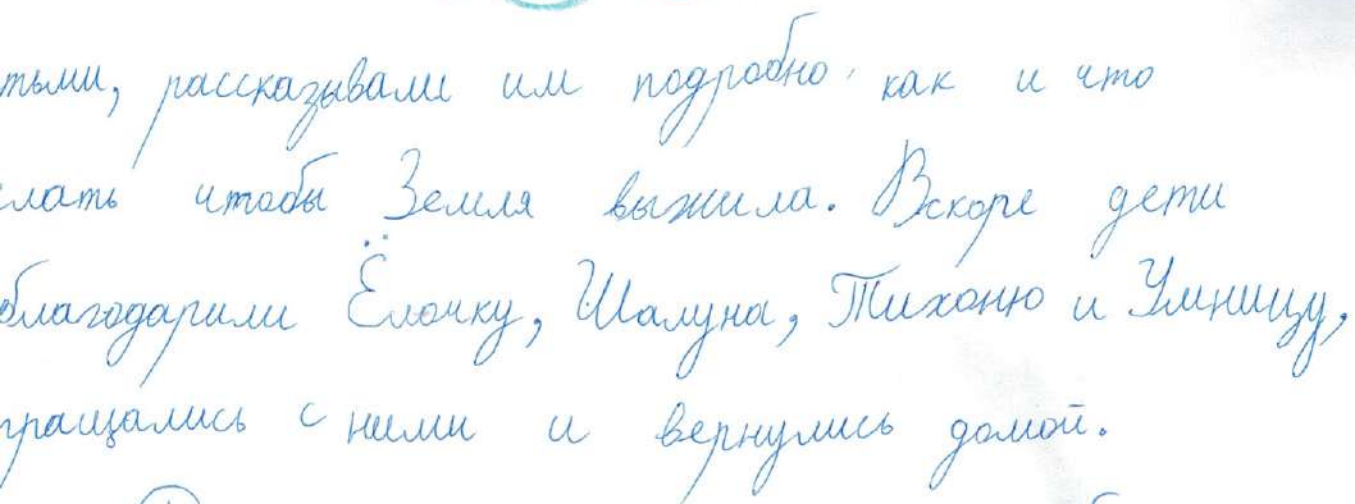 тьми, рассказывали им подробно, как и что
елать чтобы Земля выжила. Вскоре дети
облагодарили Ёлочку, Шалуна, Тихоню и Умницу,
пращались с ними и вернулись домой.